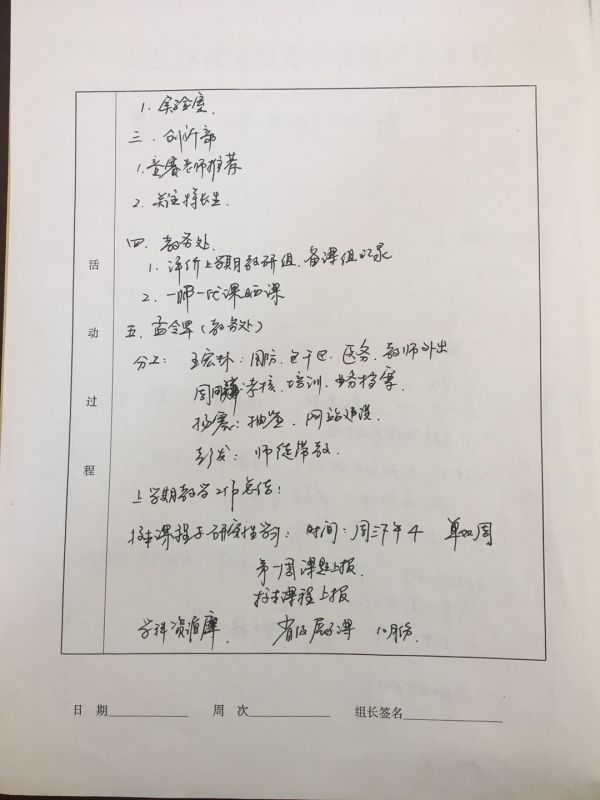 1. 实验室.
三. 创新部
1. 竞赛老师推荐
2. 关注特长生.
四. 教务处.
1. 评价上学期教研组、备课组记录
2. 一师一优课晒课
五. 孟令军（教务处）
分工: 王宏林: 国防、包干区、医务、教师外出
考核、培训、业务档案
抽查、网站建设
彭发: 师徒带教.
上学期教学工作总结:
校本课程与研究性学习: 时间: 周三下午4 单双周
第一周课题上报.
校本课程上报
学科资源库. 省级展示课 10月份
活动过程
日 期
周 次
组长签名